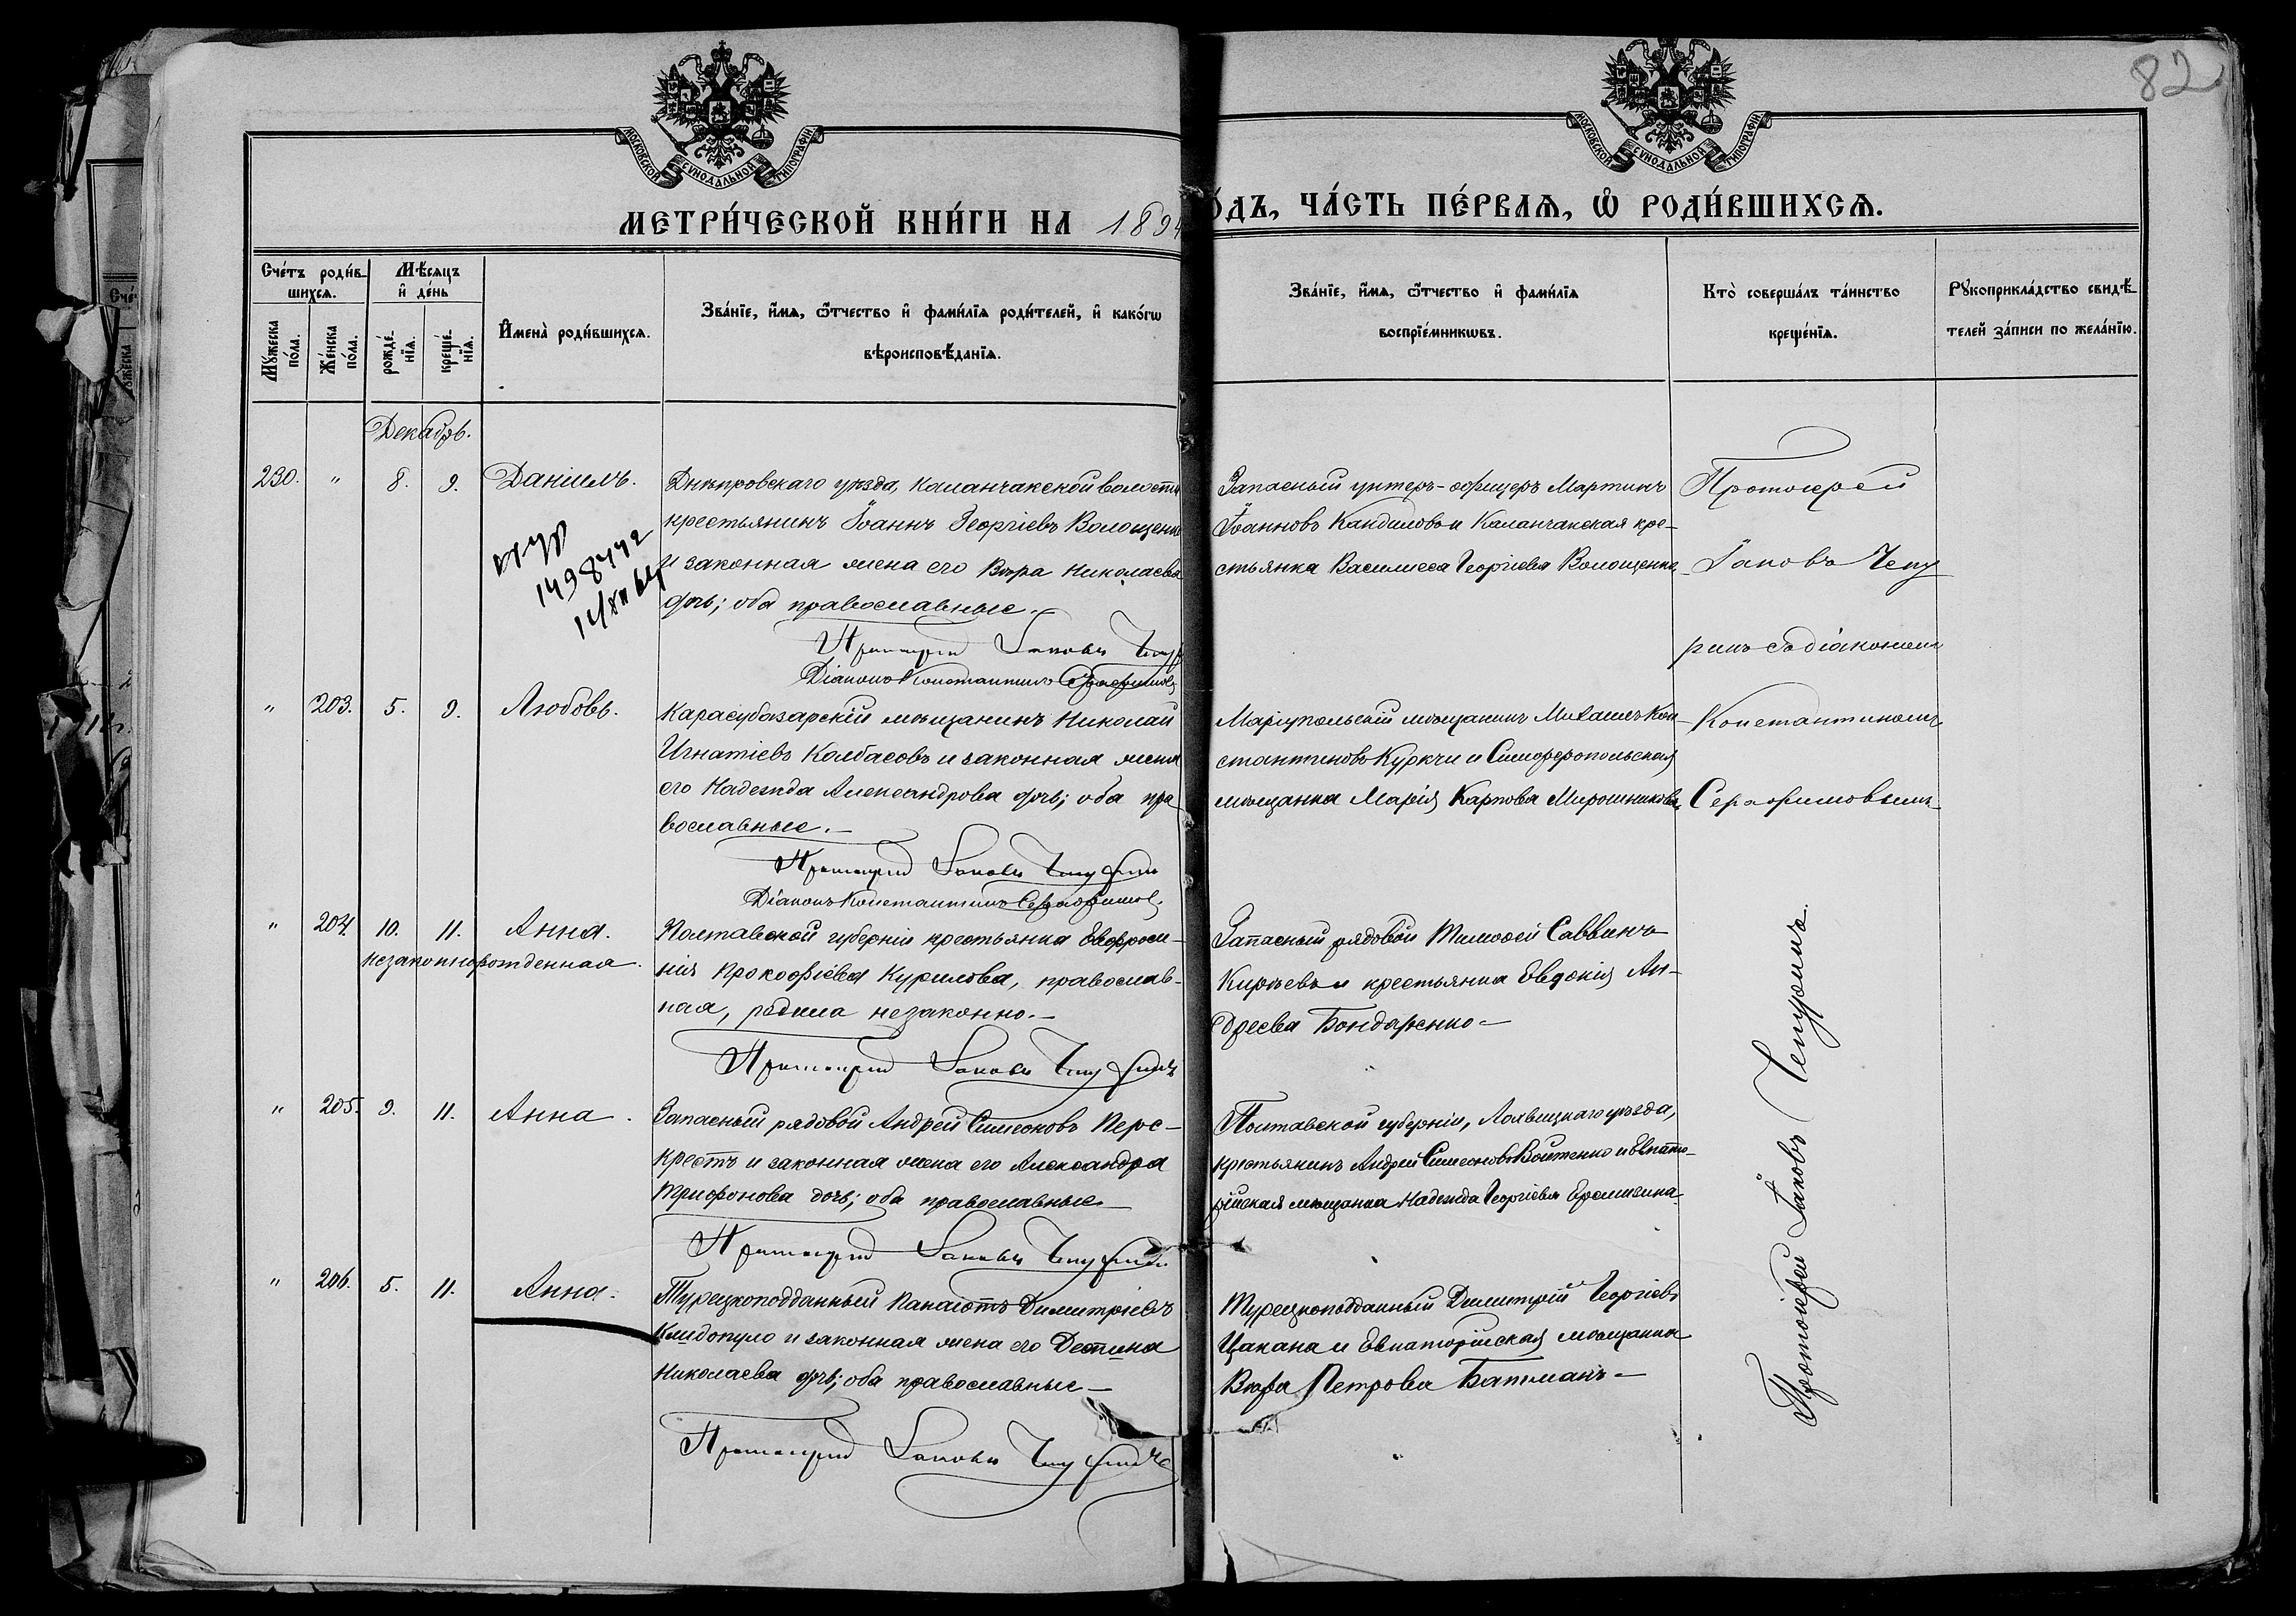 82
МОСКОВСКОЙ СѴНОДАЛЬНОЙ ТИПОГРАФІИ
МОСКОВСКОЙ СѴНОДАЛЬНОЙ ТИПОГРАФІИ
МЕТРИ́ЧЕСКОЙ КНИ́ГИ НА 1894
О́ДЪ, ЧА́СТЬ ПЕ́РВАѦ, Ѡ҆ РОДИ́ВШИХСѦ.
Сче́тъ роди́в-
шихсѧ.
Мꙋ́жеска по́ла.
Же́нска по́ла.
Мѣ́сѧцъ
и҆ де́нь
рожде́-
нїѧ.
креще́-
нїѧ.
И҆мена̀ роди́вшихсѧ.
Зва́нїе, и҆́мѧ, ѻ҆́тчество и҆ фами́лїѧ роди́телей, и҆ како́гѡ
вѣроисповѣ́данїѧ.
Зва́нїе, и҆́мѧ, ѻ҆́тчество и҆ фами́лїѧ
воспрїе́мникѡвъ.
Кто̀ соверша́лъ та́инство
креще́нїѧ.
Рꙋкоприкла́дство свидѣ́-
телей за́писи по жела́нїю.
Декабрь.
230. " 8. 9. Даніилъ.
1498442
Днѣпровскаго уѣзда, Каланчакской волости
крестьянинъ Іоаннъ Георгіевъ Волощенко
и законная жена его Вѣра Николаева
дочь; оба православные.
Протоіерей Іаковъ Чепу
Діаконъ Константинъ Серафимовъ
Запасный унтеръ-офицеръ Мартинъ
Іоанновъ Кандиловъ и Каланчакская кре-
стьянка Василиса Георгіева Волощенко
Протоіерей
Іаковъ Чепу
ринъ съ діакономъ
Константиномъ
Серафимовымъ
" 203. 5. 9. Любовь.
Карасубазарскій мѣщанинъ Николай
Игнатіевъ Колбасовъ и законная жена
его Надежда Александрова дочь; оба пра
вославные.—
Протоіерей Іаковъ Чепуринъ
Діаконъ Константинъ Серафимовъ
Маріупольскій мѣщанинъ Михаилъ Кон-
стантиновъ Куркчи и Симферопольская
мѣщанка Марія Карпова Мирошникова
" 204. 10. 11. Анна.
незаконнорожденная.
Полтавской губерніи крестьянка Евфроси-
нія Прокофіева Курилова, православ-
ная, родила незаконно.—
Протоіерей Іаковъ Чепуринъ
Запасный рядовой Тимоѳей Саввинъ
Кирѣевъ и крестьянка Евдокія Ан-
дреева Бондаренко—
" 205. 9. 11. Анна.
Запасный рядовой Андрей Симеоновъ Пере-
крестъ и законная жена его Александра
Трифонова дочь; оба православные—
Протоіерей Іаковъ Чепуринъ
Полтавской губерніи, Лохвицкаго уѣзда,
крестьянинъ Андрей Симеоновъ Войтенко и Евпато-
рійская мѣщанка Надежда Георгіева
" 206. 5. 11. Анна.
Турецкоподданный Панаіотъ Димитріевъ
Клидопуло и законная жена его Деспина
Николаева дочь; оба православные—
Протоіерей Іаковъ Чепуринъ
Турецкоподданный Димитрій Георгіевъ
Цакана и Евпаторійская мѣщанка
Вѣра Петрова Батманъ—
Протоіерей Іаковъ Чепуринъ.